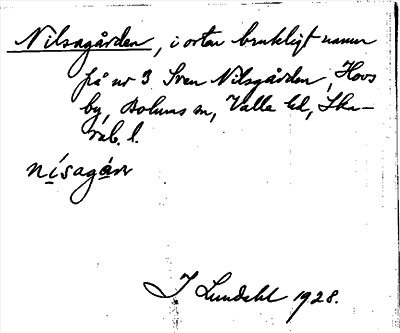 Nilsagården, i orten brukligt namn
på nr 3 Sven Nilsgården, Hovs
by, Bolums sn, Valle hd, Ska-
rab. l.
nísagáṛ
I Lundahl 1928.